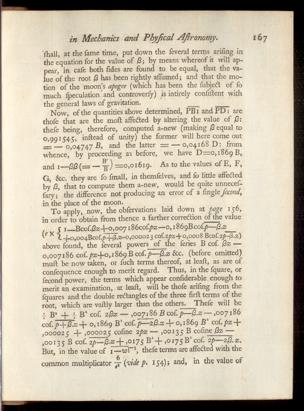 in Mechanics and Phyſical Aſtronomy. 167
ſhall, at the ſame time, put down the ſeveral terms ariſing in
the equation for the value of ß; by means whereof it will ap-
pear, in caſe both ſides are found to be equal, that the va-
lue of the root ß has been rightly aſſumed; and that the mo-
tion of the moon's apogee (which has been the ſubject of ſo
much ſpeculation and controverſy) is intirely conſiſtent with
the general laws of gravitation.
Now, of the quantities above determined, PB1 and PD1 are
thoſe that are the moſt affected by altering the value of ß:
theſe being, therefore, computed a-new (making ß equal to
0,991545, inſtead of unity) the former will here come out
= — 0,04747 B, and the latter = — 0,04168 D: from
whence, by proceeding as before, we have D=0,1869 B,
and 1—ßß (= — W/B) = 0,01619. As to the values of E, F,
G, &c. they are ſo ſmall, in themſelves, and ſo little affected
by ß, that to compute them a-new, would be quite unneceſ-
ſary; the difference not producing an error of a ſingle ſecond,
in the place of the moon.
To apply, now, the obſervations laid down at page 156,
in order to obtain from thence a farther correction of the value
above found, the ſeveral powers of the ſeries B coſ. ßz —
0,007186 coſ. pz+0,1869 B coſ. p—ß.z &c. (before omitted)
muſt be now taken, or ſuch terms thereof, at leaſt, as are of
conſequence enough to merit regard. Thus, in the ſquare, or
ſecond power, the terms which appear conſiderable enough to
merit an examination, at leaſt, will be thoſe ariſing from the
ſquares and the double rectangles of the three firſt terms of the
root, which are vaſtly larger than the others. Theſe will be
½ B² + ½ B² coſ. 2ßz — ,007186 B coſ. p—ß.z — ,007186
coſ. p+ß.z + 0,1869 B² coſ. p—2ß.z + 0,1869 B² coſ. pz +
,000025 + ,000025 coſine 2pz — ,00135 B coſine ßz —
,00135 B coſ. 2p—ß.z + ,0175 B² + ,0175 B² coſ. 2p—2ß.z.
But, in the value of 1—w⁻¹, theſe terms are affected with the
common multiplicator (vide p. 154); and, in the value of